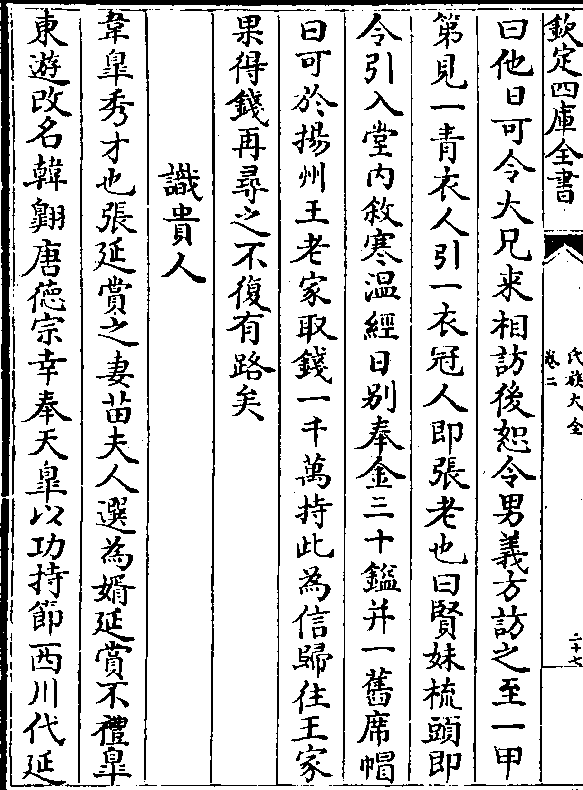 欽定四庫全書
氏族大全
卷二
二十七
曰他日可令大兄来相訪後恕令男義方訪之至一甲
第見一青衣人引一衣冠人即張老也曰賢妹梳頭即
令引入堂内敘寒温經日别奉金三十鎰并一舊席帽
曰可於揚州王老家取錢一千萬持此為信歸往王家
果得錢再尋之不復有路矣
識貴人
韋臯秀才也張延賞之妻苗夫人選為婿延賞不禮臯
東遊改名韓翺唐徳宗幸奉天臯以功持節西川代延